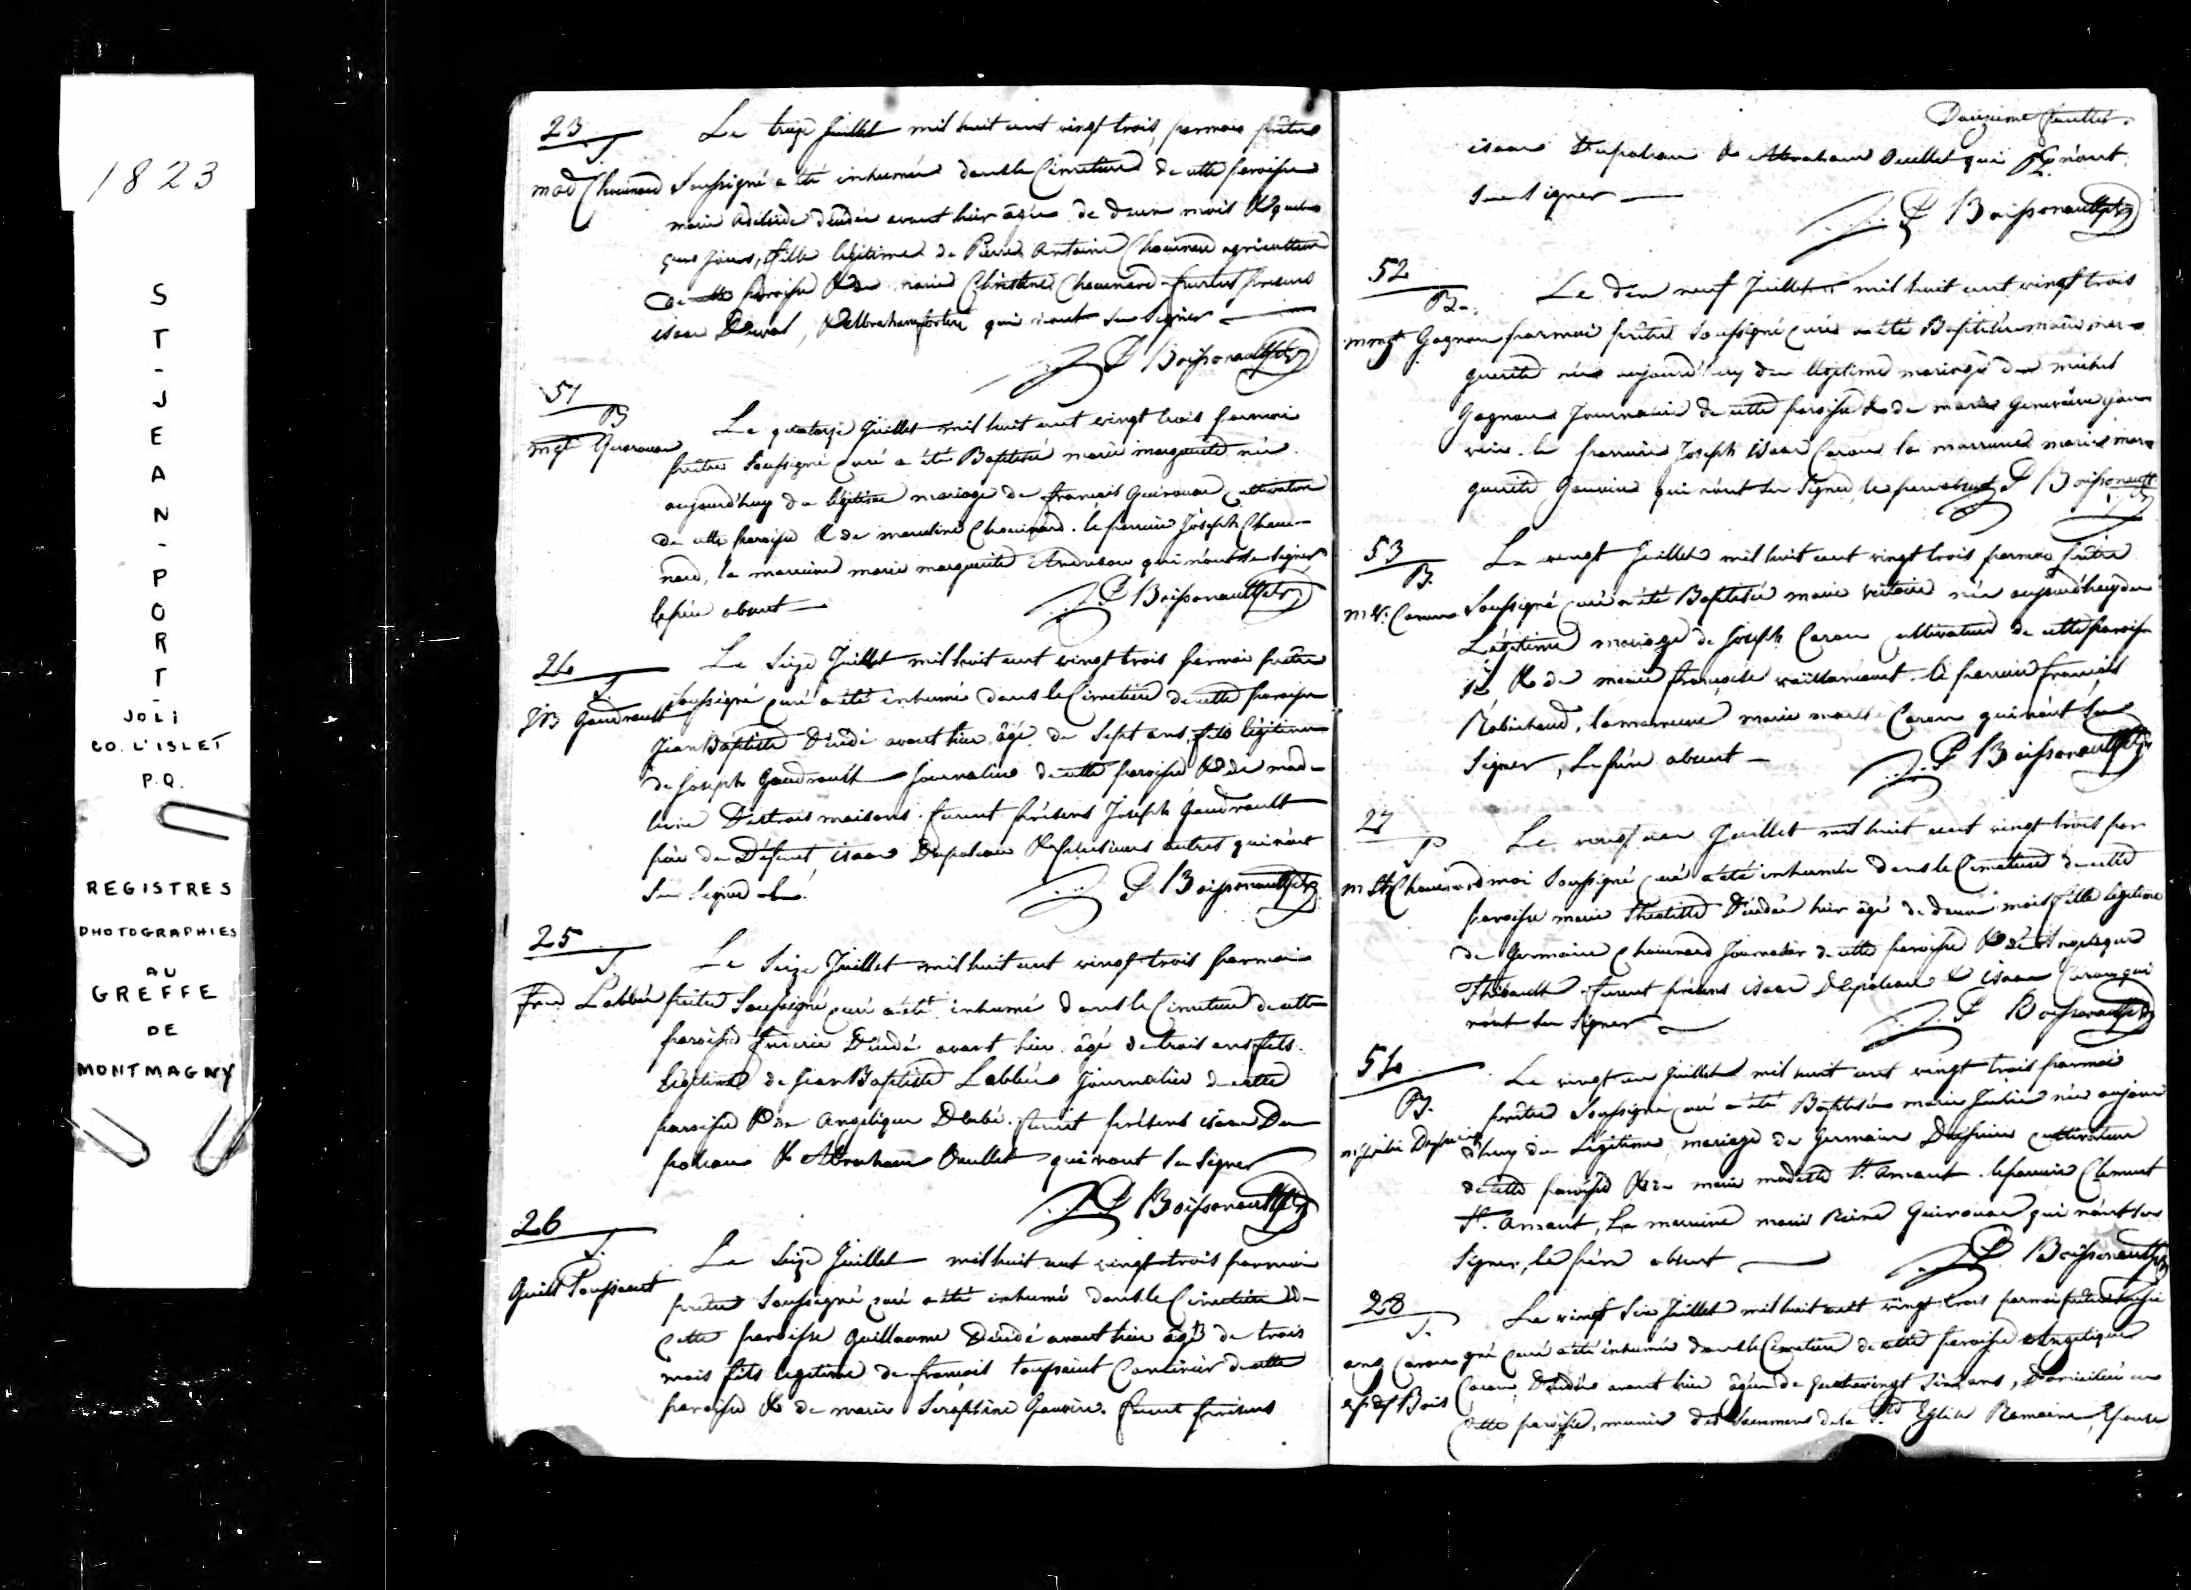 1823
ST-JEAN-PORT-
JOLI
CO. L'ISLET
P.Q.
REGISTRES
PHOTOGRAPHIES
AU
GREFFE
DE
MONTMAGNY
23
S
Mad Chouinard
Le treize Juillet mil huit cent vingt trois, par moi prêtre
Soussigné a été inhumée dans le Cimetière de cette paroisse
marie Adelaide décédée avant hier âgée de deux mois & quel-
ques jours, fille légitime de Pierre Antoine Chouinard agriculteur
de cette paroisse & de marie Christine Chouinard furent présens
isaac &Abraham qui n'ont su signer
Boissonnault ptr
51
B
Mgt Quirouac
Le quatorze Juillet mil huit cent vingt trois par moi
prêtre Soussigné curé a été Baptisée marie marguerite née
aujourd'huy du légitime mariage de françois Quirouac cultivateur
de cette paroisse & de marceline Chouinard. le parrain Joseph Choui-
nard, la marraine marie marguerite qui n'ont su signer
le père absent
Boissonnault ptr
24
S
JB Gaudrault
Le Seize Juillet mil huit cent vingt trois par moi prêtre
soussigné curé a été inhumé dans le Cimetière de cette paroisse
Jean Baptiste Décédé avant hier âgé de Sept ans, fils légitime
de Joseph Gaudrault Journalier de cette paroisse & de made-
leine Destroismaisons. furent présens Joseph Gaudrault
père du Défunt, isaac Dupoleau & plusieurs autres qui n'ont
Su Signer
Boissonnault ptr
25
S
Fred Labbée
Le Seize Juillet mil huit cent vingt trois par moi
prêtre Soussigné curé a été inhumé dans le Cimetière de cette
paroisse Décédé avant hier âgé de trois ans fils
légitime de Jean Baptiste Labbée Journalier de cette
paroisse & de Angelique furent présens isaac Du-
poleau & Abraham Ouellet qui n'ont su Signer
Boissonnault ptr
26
S.
Guill Toussaint
Le Seize Juillet mil huit cent vingt trois par moi
prêtre Soussigné curé a été inhumé dans le Cimetière de
cette paroisse Guillaume Décédé avant hier âgé de trois
mois fils legitime de françois toussaint de cette
paroisse & de marie Seraphine Gauvin. furent présens
Douzieme feuillet.
isaac Dupoleau & Abraham Ouellet qui n'ont
su signer
Boissonnault ptr
52
B.
Mrgt Gagnon
Le dix neuf Juillet mil huit cent vingt trois
par moi prêtre soussigné curé a été Baptisée marie mar-
guerite née aujourd'huy du légitime mariage de michel
Gagnon Journalier de cette paroisse & de marie Geneviève
le parrain Joseph isaac Caron la marraine marie mar-
guerite Gauvin qui n'ont su Signer, le père absent
Boissonnault ptr
53
B.
M. V. Caron
Le vingt Juillet mil huit cent vingt trois par moi prêtre
Soussigné curé a été Baptisée marie née aujourd'huy du
Légitime mariage de Joseph Caron cultivateur de cette paroisse
& de marie françoise vaillancourt. le parrain françois
Robichaud, la marraine marie Caron qui n'ont su
Signer, Le père absent
Boissonnault ptr
27
S
M Chouinard
Le vingt un Juillet mil huit cent vingt trois par
moi Soussigné curé a été inhumée dans le Cimetière de cette
paroisse marie Décédée hier âgé de deux mois fille legitime
de Germain Chouinard Journalier de cette paroisse & de Angelique
Thibault. furent présens isaac Dupoleau & isaac Caron qui
n'ont su Signer
Boissonnault ptr
54
B.
M. Julie
Le vingt un Juillet mil huit cent vingt trois par moi
prêtre Soussigné curé a été Baptisée marie Julie née aujour-
d'huy du Légitime mariage de Germain cultivateur
de cette paroisse & de marie modeste St. Amant. le parrain Clement
St. Amant, La marraine marie Reine Quirouac qui n'ont su
Signer, le père absent
Boissonnault ptr
28
S.
Ang Caron
Bois
Le vingt Six Juillet mil huit cent vingt trois par moi prêtre soussi-
gné curé a été inhumée dans le Cimetière de cette paroisse Angelique
Caron, Décédée avant hier âgée de quatrevingt Six ans, Domiciliée en
cette paroisse, munie des Sacremens de la Ste Eglise Romaine, Epouse